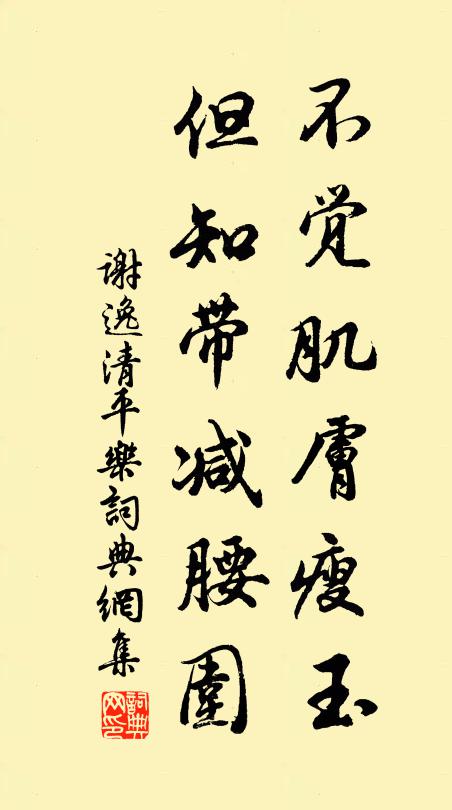 不觉肌膚瘦玉
但知带减腰圍
谢逸清平樂詞典網集
詞典网印